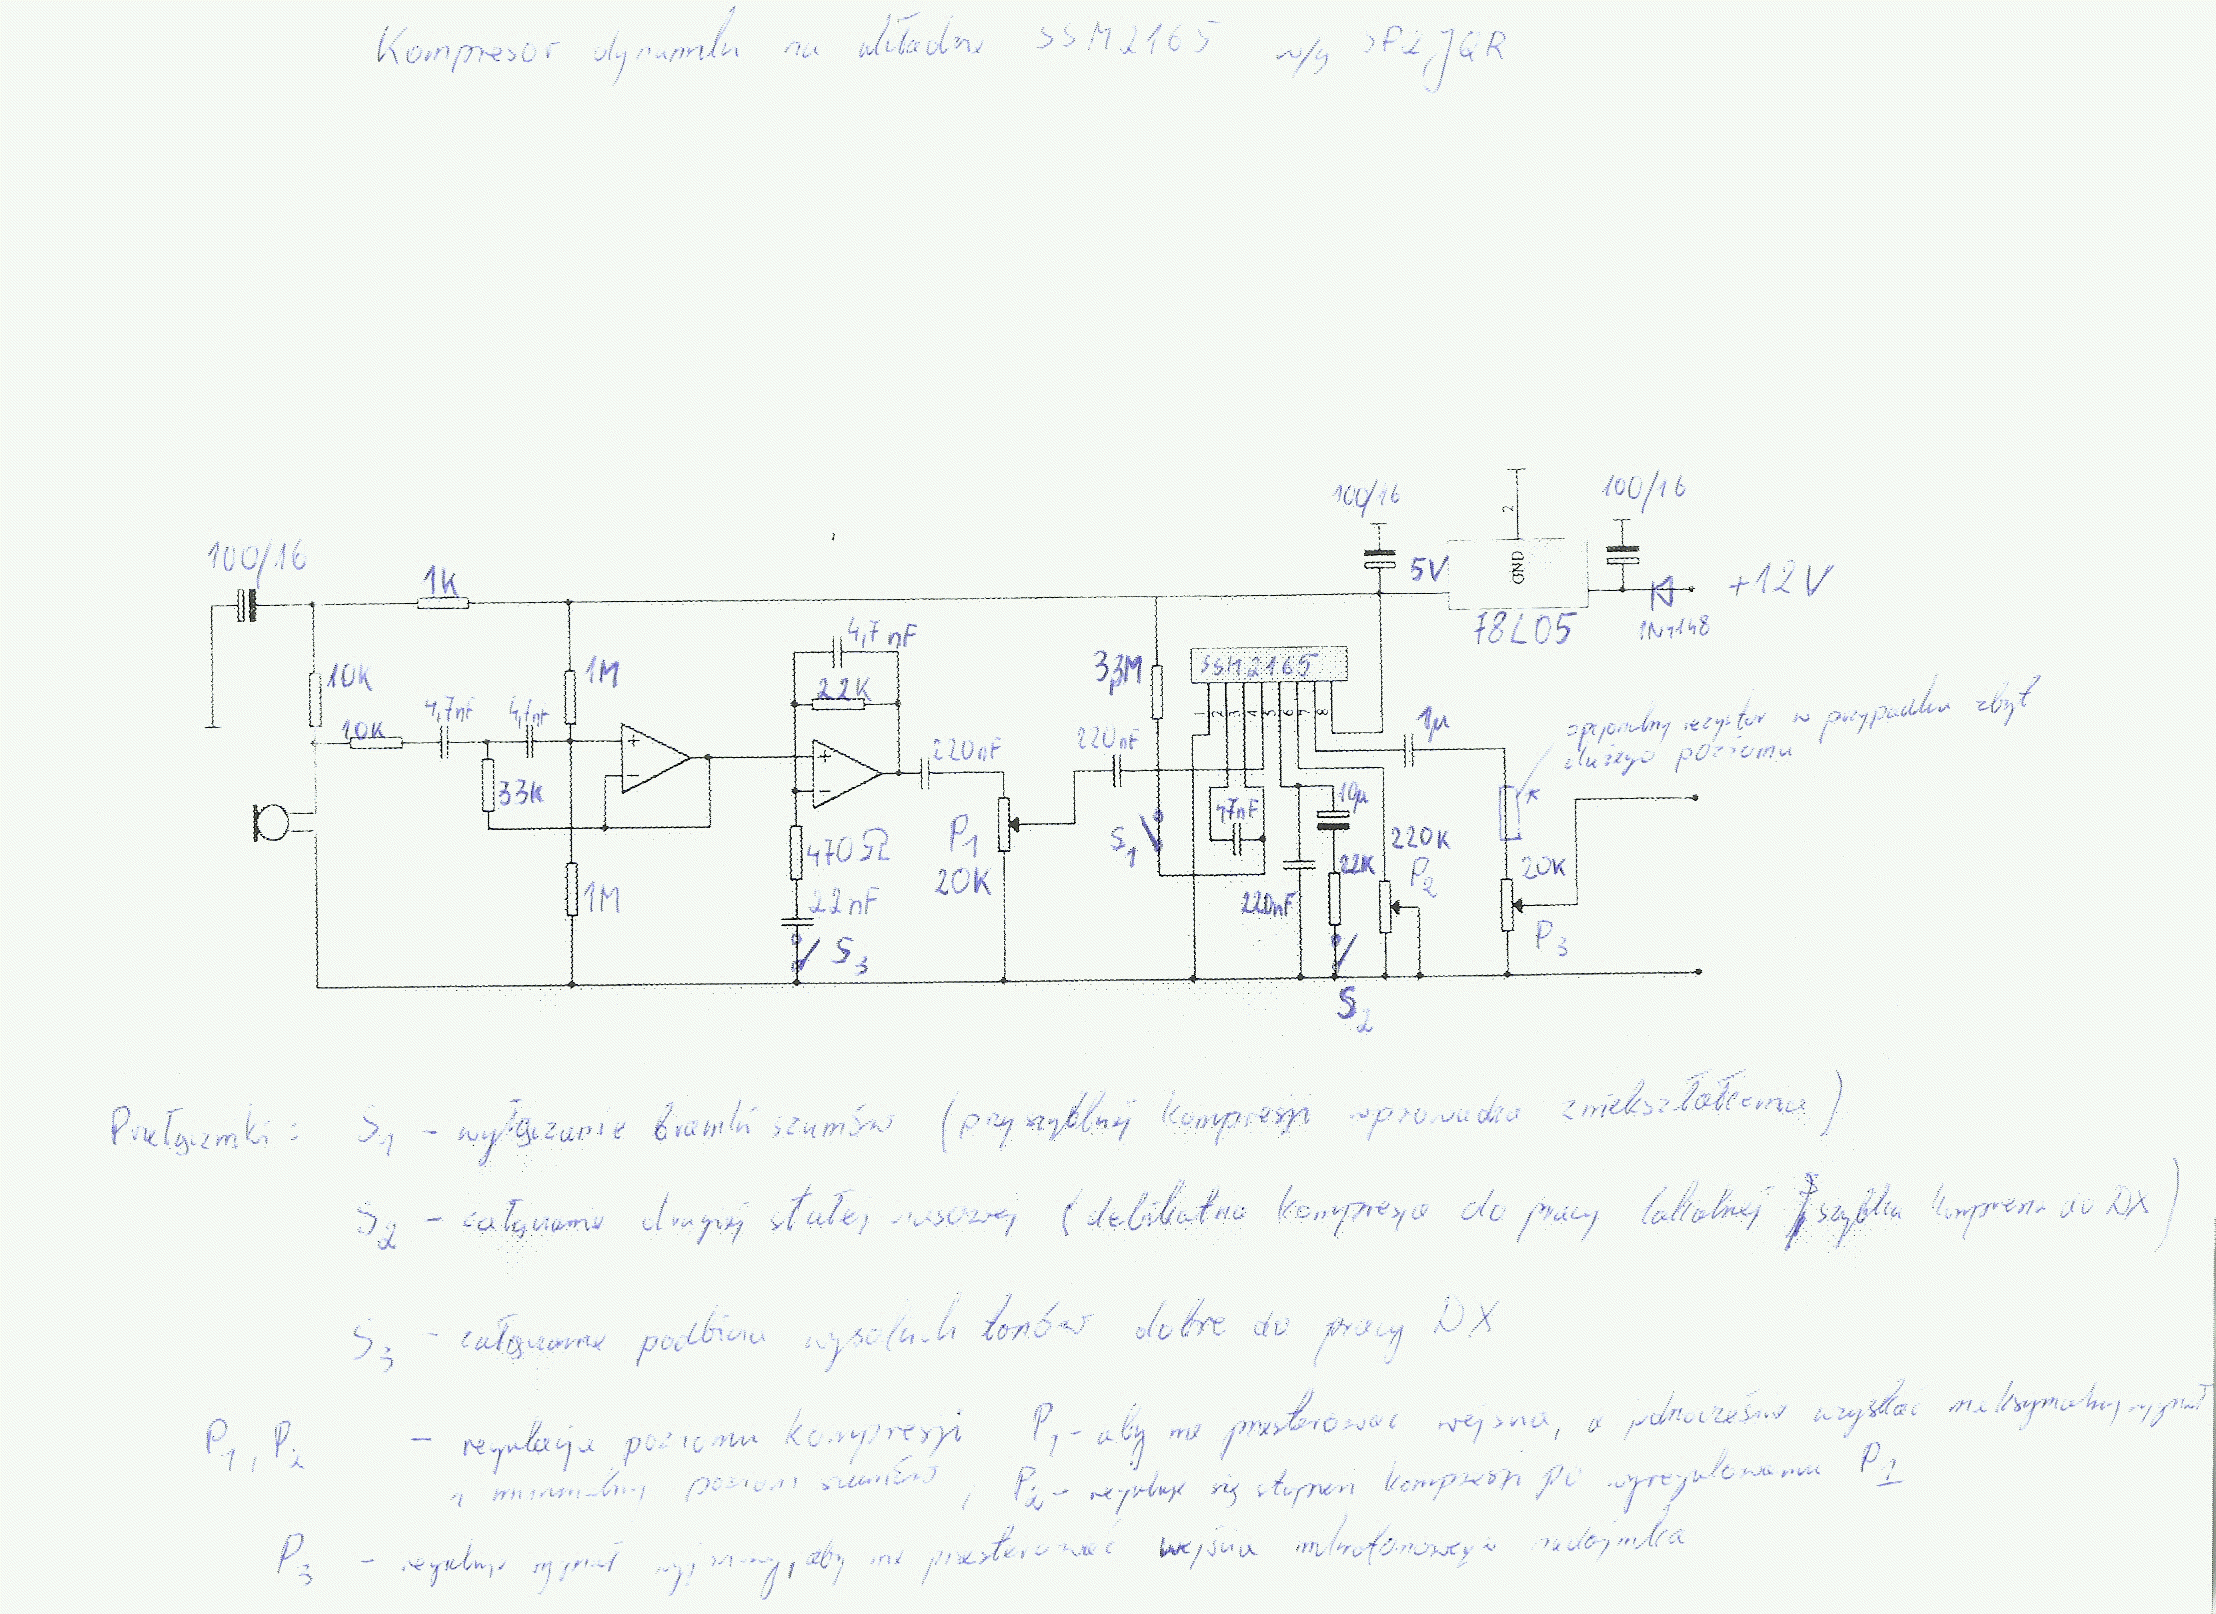 Kompresor dynamiki na układzie SSM2165 w/g SP2JQR
100/16
100/16
100/16
5V
2
GND
+12V
78L05
1N4148
1K
10K
1M
4,7nF
22K
3,3M
SSM2165
1 2 3 4 5 6 7 8
1µ
opcjonalny rezystor w przypadku zbyt
dużego poziomu
*
10K
4,7nF
4,7nF
33K
220nF
220nF
47nF
10µ
S1
470Ω
P1
20K
22K
220K
P2
20K
1M
22nF
220nF
P3
S3
S2
Przełączniki: S1 - wyłączanie bramki szumów (przy szybkiej kompresji wprowadza zniekształcenia)
S2 - załączanie drugiej stałej czasowej (delikatna kompresja do pracy lokalnej / szybka kompresja do DX)
S3 - załączanie podbicia wysokich tonów dobre do pracy DX
P1, P2 - regulacja poziomu kompresji P1 - aby nie przesterować wejścia, a jednocześnie uzyskać maksymalny sygnał
i minimalny poziom szumów, P2 - reguluje się stopień kompresji po wyregulowaniu P1
P3 - reguluje sygnał wyjściowy, aby nie przesterować wejścia mikrofonowego radiojnika